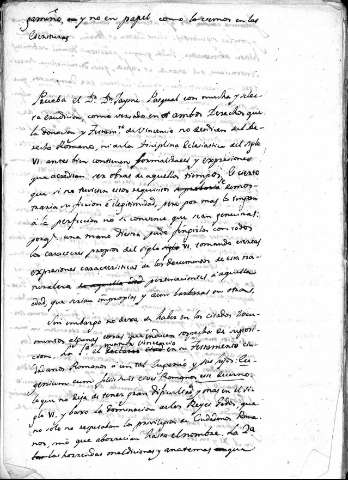 gamino, y no en papel como leemos en las
Escrituras.
Prueba el D.r D.n Jayme Pasqual con mucha y selec-
ta erudicion, como versado en ambos Derechos, que
la donacion y Testam.to de Vincencio no desdicen del De-
recho Romano, ni de la Disciplina Eclesiastica del siglo
VI. antes bien contienen formalidades y expresiones
que acreditan ser obras de aquellos tiempos. Es cierto
que si no tuviesen estos requisitos demos-
traria su ficcion e ilegitimidad, pero por mas q.e tengan
a la perfeccion no se convence que sean genuinas;
porq.e una mano diestra pudo fingirlas con todos
los caracteres propios del siglo VI, tomando ciertas
expresiones caracteristicas de los documentos de esta na-
turaleza pertenecientes a aquella
edad, que serian impropias y aun barbaras en otras.
Sin embargo no dexa de haber en los citados Docu-
mentos algunas cosas que inducen sospecha de suposi-
cion. en su Testamento Ciu-
dadanos Romanos a un tal Eugenio y sus hijos: Eu-
genium cum filiis suis cives Romanos
lo que no deja de tener gran dificultad, pues en el si-
glo VI, y baxo la dominacion de los Reyes Godos que
no solo no respetaban los privilegios de Ciudadanos Roma-
nos, sino que aborrecian hasta el nombre. La Do-
las horrendas maldiciones y anatemas